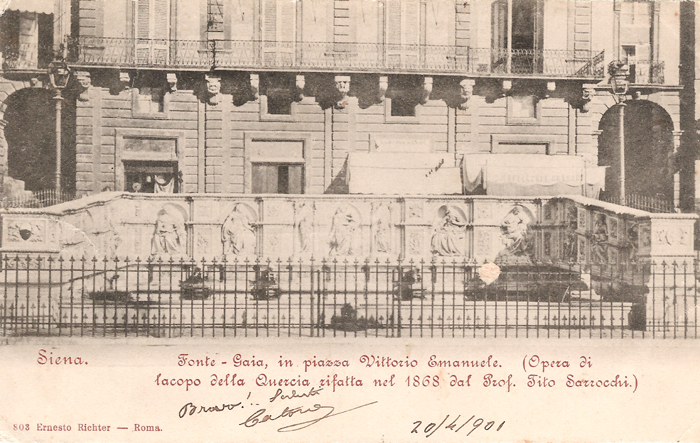 Siena.
Fonte - Gaia, in piazza Vittorio Emanuele. (Opera di
Iacopo della Quercia rifatta nel 1868 dal Prof. Tito Sarrocchi.)
Bravo!.. Saluti
20/4/901
803 Ernesto Richter — Roma.